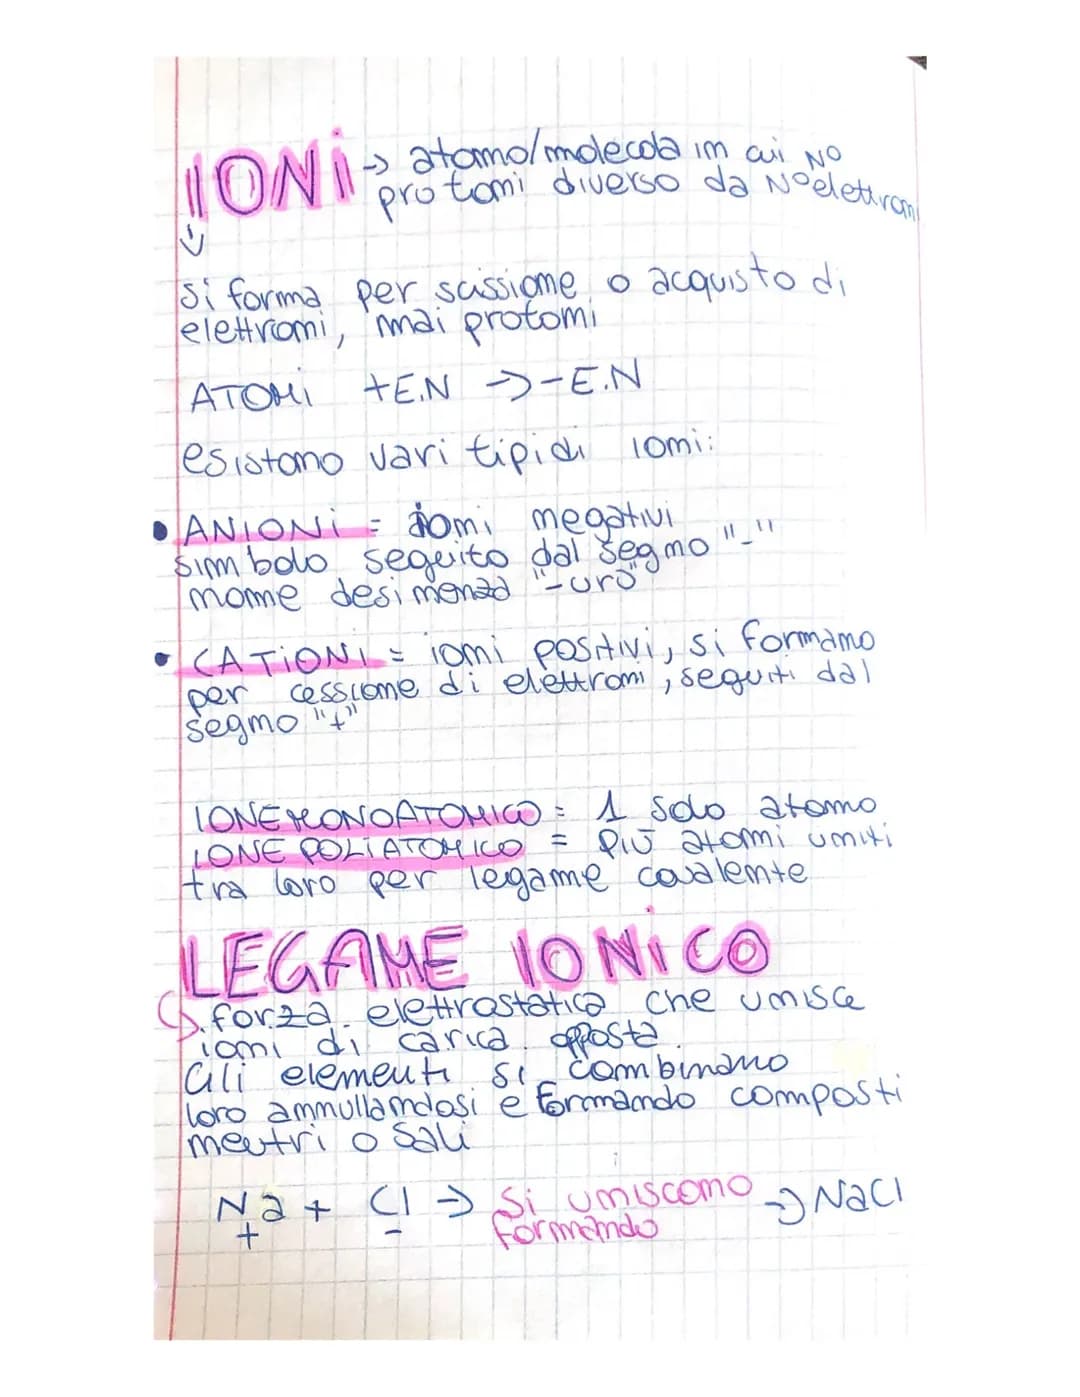 IONI → atomo/molecola in cui N°
protoni diverso da N°elettroni
↓
si forma per scissione o acquisto di
elettroni, mai protoni
ATOMI +E.N → -E.N
esistono vari tipi di ioni:
• ANIONI = ioni negativi
simbolo seguito dal segno "-"
nome desinenza "-uro"
• CATIONI = ioni positivi, si formano
per cessione di elettroni, seguiti dal
segno "+"
IONE MONOATOMICO = 1 solo atomo
IONE POLIATOMICO = più atomi uniti
tra loro per legame covalente
LEGAME IONICO
↳ forza elettrostatica che unisce
ioni di carica opposta
Gli elementi si combinano
loro annullandosi e formando composti
neutri o sali
Na + Cl → si uniscono → NaCl
+ - formando